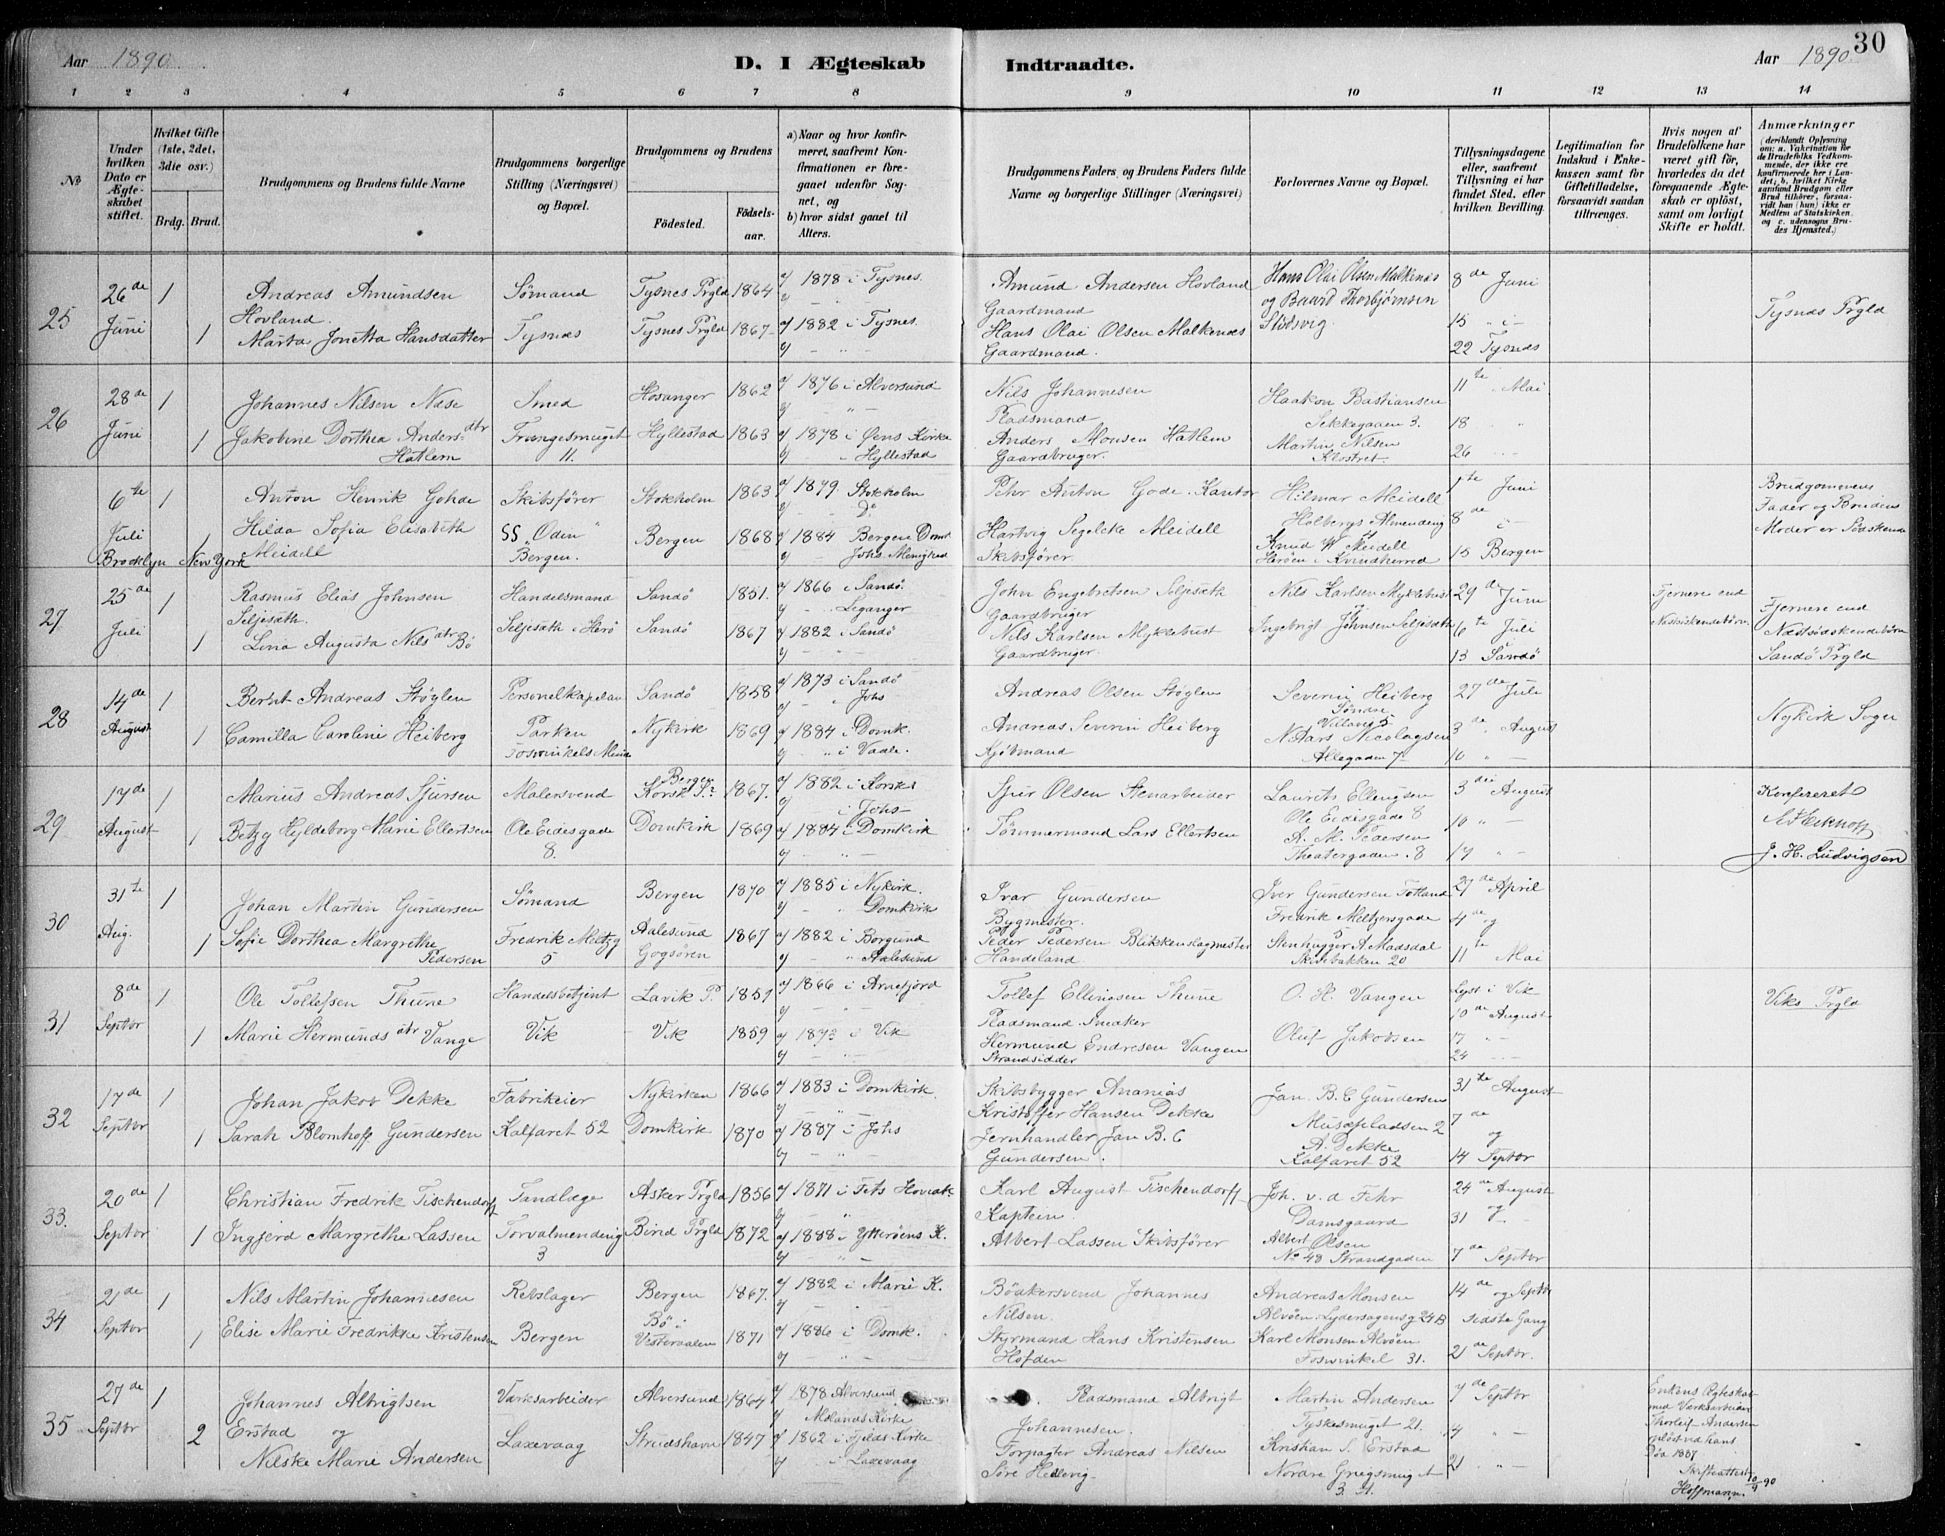 Aar 1890. D. I Ægteskab Indtraadte. Aar 1890. 30
1 2 3 4 5 6 7 8 9 10 11 12 13 14
No
Under hvilken Dato er Ægteskabet stiftet.
Hvilket Gifte (1ste, 2det, 3die osv.)
Brdg. Brud.
Brudgommens og Brudens fulde Navne
Brudgommens borgerlige Stilling (Næringsvei) og Bopæl.
Brudgommens og Brudens
Fødested. Fødselsaar.
a) Naar og hvor konfirmeret, saafremt Konfirmationen er foregaaet udenfor Sognet, og
b) hvor sidst gaaet til Alters.
Brudgommens Faders, og Brudens Faders fulde Navne og borgerlige Stillinger (Næringsvei)
Forlovernes Navne og Bopæl.
Tillysningsdagene eller, saafremt Tillysning ei har fundet Sted, efter hvilken Bevilling.
Legitimation for Indskud i Enkekassen samt for Giftetilladelse, forsaavidt saadan tiltrænges.
Hvis nogen af Brudefolkene har været gift før, hvorledes da det foregaaende Ægteskab er opløst, samt om lovligt Skifte er holdt.
Anmærkninger
(deriblandt Oplysning om: a. Vakcination for de Brudefolks Vedkommende, der ikke ere konfirmerede her i Landet; b. hvilket Kirkesamfund Brudgom eller Brud tilhører, forsaavidt han (hun) ikke er Medlem af Statskirken, og c. udensogns Brudes Hjemsted.)
25
26de Juni
1
Andreas Amundsen Hovland.
Sømand
Tysnes Prgld 1864
a) 1878 i Tysnes.
Amund Andersen Hovland Gaardmand
Hans Olai Olsen Malkenæs og Baard Thorbjørnsen
8de Juni
1
Marta Jonetta Hansdatter
Tysnæs
Tysnes Prgld 1867
a) 1882 i Tysnes.
Hans Olai Olsen Malkenæs Gaardmand.
15 " i
22 Tysnæs
Tysnæs Prgld
26
28de Juni
1
Johannes Nilsen Næse
Smed
Hosanger 1862
a) 1876 i Alversund
Nils Johannesen Pladsmand
Haakon Bastiansen
Sekkegaden 3.
11te Mai
1
Jakobine Dorthea Andersdtr Hatlem
11.
Hyllestad 1863
a) 1878 i Øens Kirke
b) " Hyllestad
Anders Monsen Hatlem Gaardbruger.
Martin Nilsen
Klostret.
18 "
26 "
6te Juli
Brooklyn New York
1
Anton Henrik Gohde
Skibsfører
Stokholm 1863
a) 1879 Stokholm
b) Do
Petr Anton Gode. Kantor
Hilmar Meidell
Holbergs Almending
1te Juni
8de "
1
Hilda Sofia Elisabeth Meidell
SS "Odin" Bergen.
Bergen 1868
a) 1884 Bergen Domk
b) Johs. Menighed
Hartvig Segelcke Meidell Skibsfører
Knud W. Meidell
i Kvindherred
15 Bergen
Brudgommens Fader og Brudens Moder er Sødskende
27
25de Juli
1
Rasmus Elias Johnsen Seljesæth.
Handelsmand
Sandø 1851.
a) 1866 i Sandø
b) " Leganger
John Engebretsen Seljesæth Gaardbruger
Nils Karlsen Myklebust
29de Juni
1
Lina Augusta Nilsdtr Bø
Seljesæth i Herø
Sandø 1867
a) 1882 i Sandø
Nils Karlsen Myklebust Gaardbruger.
Ingebrigt Johnsen Seljesæth
6te Juli
13 Sandø
Fjernere end Næstsødskendebørn
Fjernere end Næstsødskendebørn
Sandø Prgld
28
14de August
1
Bernt Andreas Støylen
Personelkapellan
Sandø 1858
a) 1873 i Sandø
b) " Johs
Andreas Olsen Støylen
Severin Heiberg
Søndre Villavei 5
27de Juli
1
Camilla Caroline Heiberg
Parken
Nykirk 1869
a) 1884 i Domk.
b) " i Vaale.
Andreas Severin Heiberg Kjøbmand
Nicolaysen
Allegaden 7
3de August
10 "
Nykirk Sogn
29
17de August
1
Marius Andreas Sjursen
Malersvend
Bergen Korsk. 1867.
a) 1882 i Korsk.
b) i Johs
Sjur Olsen Stenarbeider
Laurits Ellingsen
Ole Eidesgade 8
3die August
1
Betzy Hyldeborg Marie Ellertsen
Ole Eidesgade 8.
Domkirk 1869
a) 1884 i Domkirk
Tømmermand Lars Ellertsen
A. M. Pedersen
Theatergaden 8
10 "
17 "
Konfereret
J. H. Ludvigsen
30
31te Aug.
1
Johan Martin Gundersen
Sømand
Bergen 1870
a) 1885 i Nykirk.
b) " Domkirk
Ivar Gundersen Bygmester.
Iver Gundersen Totland
Fredrik Meltzersgade 5
27de April
1
Sofie Dorthea Margrethe Pedersen
Fredrik Meltzg 5
Aalesund 1867
a) 1882 i Borgund
b) " Aalesund
Peder Pedersen Blikkenslagmester
Stenhugger A. Madsdal
Skivebakken 20
4de og
11te Mai
31
8de Septbr
1
Ole Tollefsen Thune
Handelsbetjent
Lavik P. 1851
a) 1866 i Arnefjord
Tollef Ellingsen Thune
Pladsmand
O. H. Vangen
Lyst i Vik
10de August
1
Marie Hermundsdtr Vange
Vik
Vik 1859
a) 1873 i Vik
Hermund Endresen Vangen
Strandsidder
Oluf Jakobsen
17 "
24 "
Viks Prgld
32
17de Septbr
1
Johan Jakob Dekke
Fabrikeier
Nykirken 1866
a) 1883 i Domkirk.
Skibsbygger Ananias Kristoffer Hansen Dekke
Jan B. C Gundersen
Musæpladsen 2
31te August
1
Sarah Blomhoff Gundersen
Kalfaret 52
Domkirk 1870
a) 1887 i Johs
Jernhandler Jan B. C Gundersen.
A. Dekke
Kalfaret 52
7de og
14 Septbr
33.
20de Septbr
1
Christian Fredrik Tischendorff
Tandlæge
Asker Prgld 1856
a) 1871 i
Karl August Tischendorff Kaptein
Joh. v. d Fehr
Damsgaard
24de August
1
Ingjerd Margrethe Lassen
Torvalmending 3
Birid Prgld 1872
a) 1888 i Ytterøens K.
Albert Lassen Skibsfører
Albert Olsen
No 48 Strandgaden
31 og
7de Septbr
34
21de Septbr
1
Nils Martin Johannesen
Rebslager
Bergen 1867.
a) 1882 i Marie K.
Bødkersvend Johannes Nilsen
Andreas Monsen
Alvøen Lyder Sagensg 24B
14de og Septbr sidste Gang
1
Elise Marie Fredrikke Kristensen
Bergen
Bø i Vesteraalen 1871
a) 1886 i Domk.
Styrmand Hans Kristensen Hofden
Karl Monsen Alvøen
Foswinkel 31.
21de Septbr.
35
27de Septbr
1
Johannes Albrigtsen Erstad og
Værksarbeider
Alversund 1864
a) 1878 Alversund
b) Mølands Kirke
Pladsmand Albrigt Johannesen.
Martin Andersen
Tyskesmuget 21.
7de Septbr
2
Nilske Marie Andersen
Laxevaag
Strudshavn 1847
a) 1862 i Fjelds Kirke
b) i Laxevaag
Forpagter Andreas Nilsen
Kristian S. Erstad
Nordre Griegsmuget 3
14 "
21 "
Enkens Ægteskab med Værksarbeider Thorleif Andersen opløst ved hans Død 1887
Skifteattest Hoffmann. 10/9 90